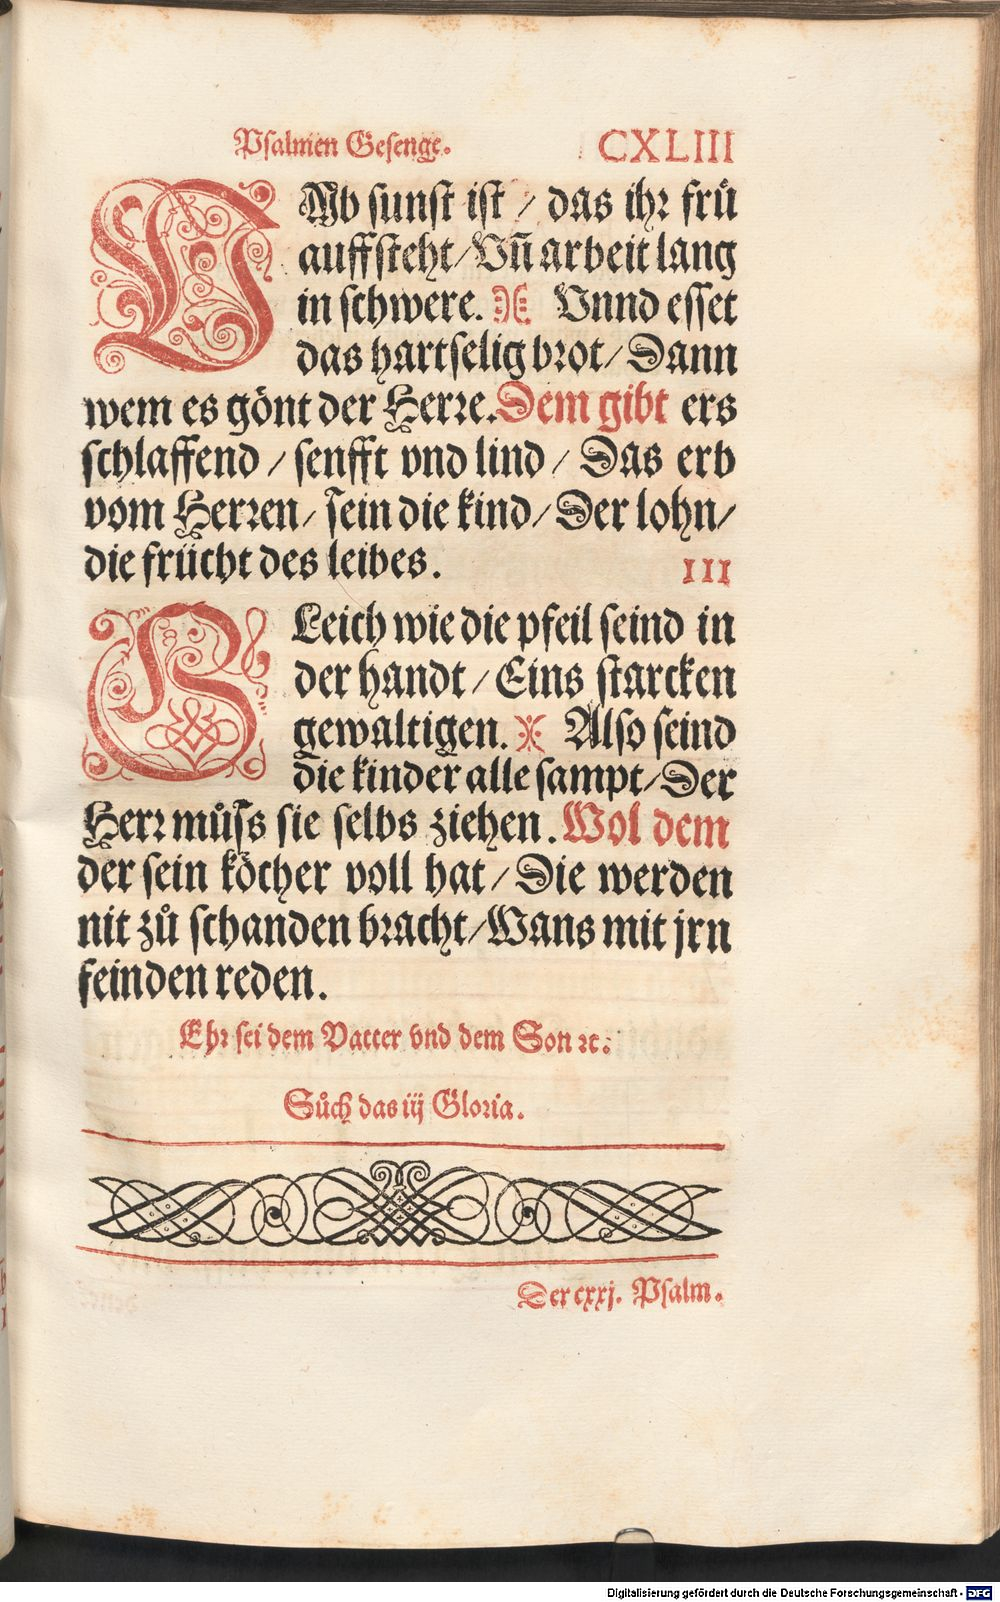 Psalmen Gesenge. CXLIII
UMb sunst ist / das ihr frü
auffsteht / Vñ arbeit lang
in schwere. Vnnd esset
das hartselig brot / Dann
wem es gönt der Herre. Dem gibt ers
schlaffend / senfft vnd lind / Das erb
vom Herren / sein die kind / Der lohn /
die frücht des leibes. III
GLeich wie die pfeil seind in
der handt / Eins starcken
gewaltigen. Also seind
die kinder alle sampt / Der
Herr můſs sie selbs ziehen. Wol dem
der sein köcher voll hat / Die werden
nit zů schanden bracht / Wans mit jrn
feinden reden.
Ehr sei dem Vatter vnd dem Son ꝛc.
Sůch das iij Gloria.
Der cxxj. Psalm.
Digitalisierung gefördert durch die Deutsche Forschungsgemeinschaft - DFG